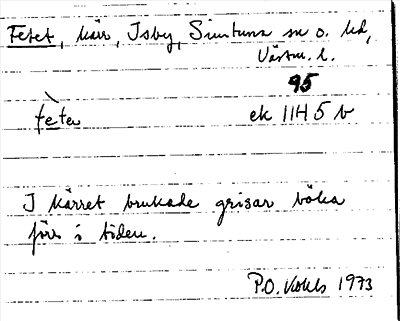 Fetet, kärr, Isby, Simtuna sn o. hd,
Västm. l.
95
fètə
ek 11H 5 b
I kärret brukade grisar böka
förr i tiden.
P.O. 1973